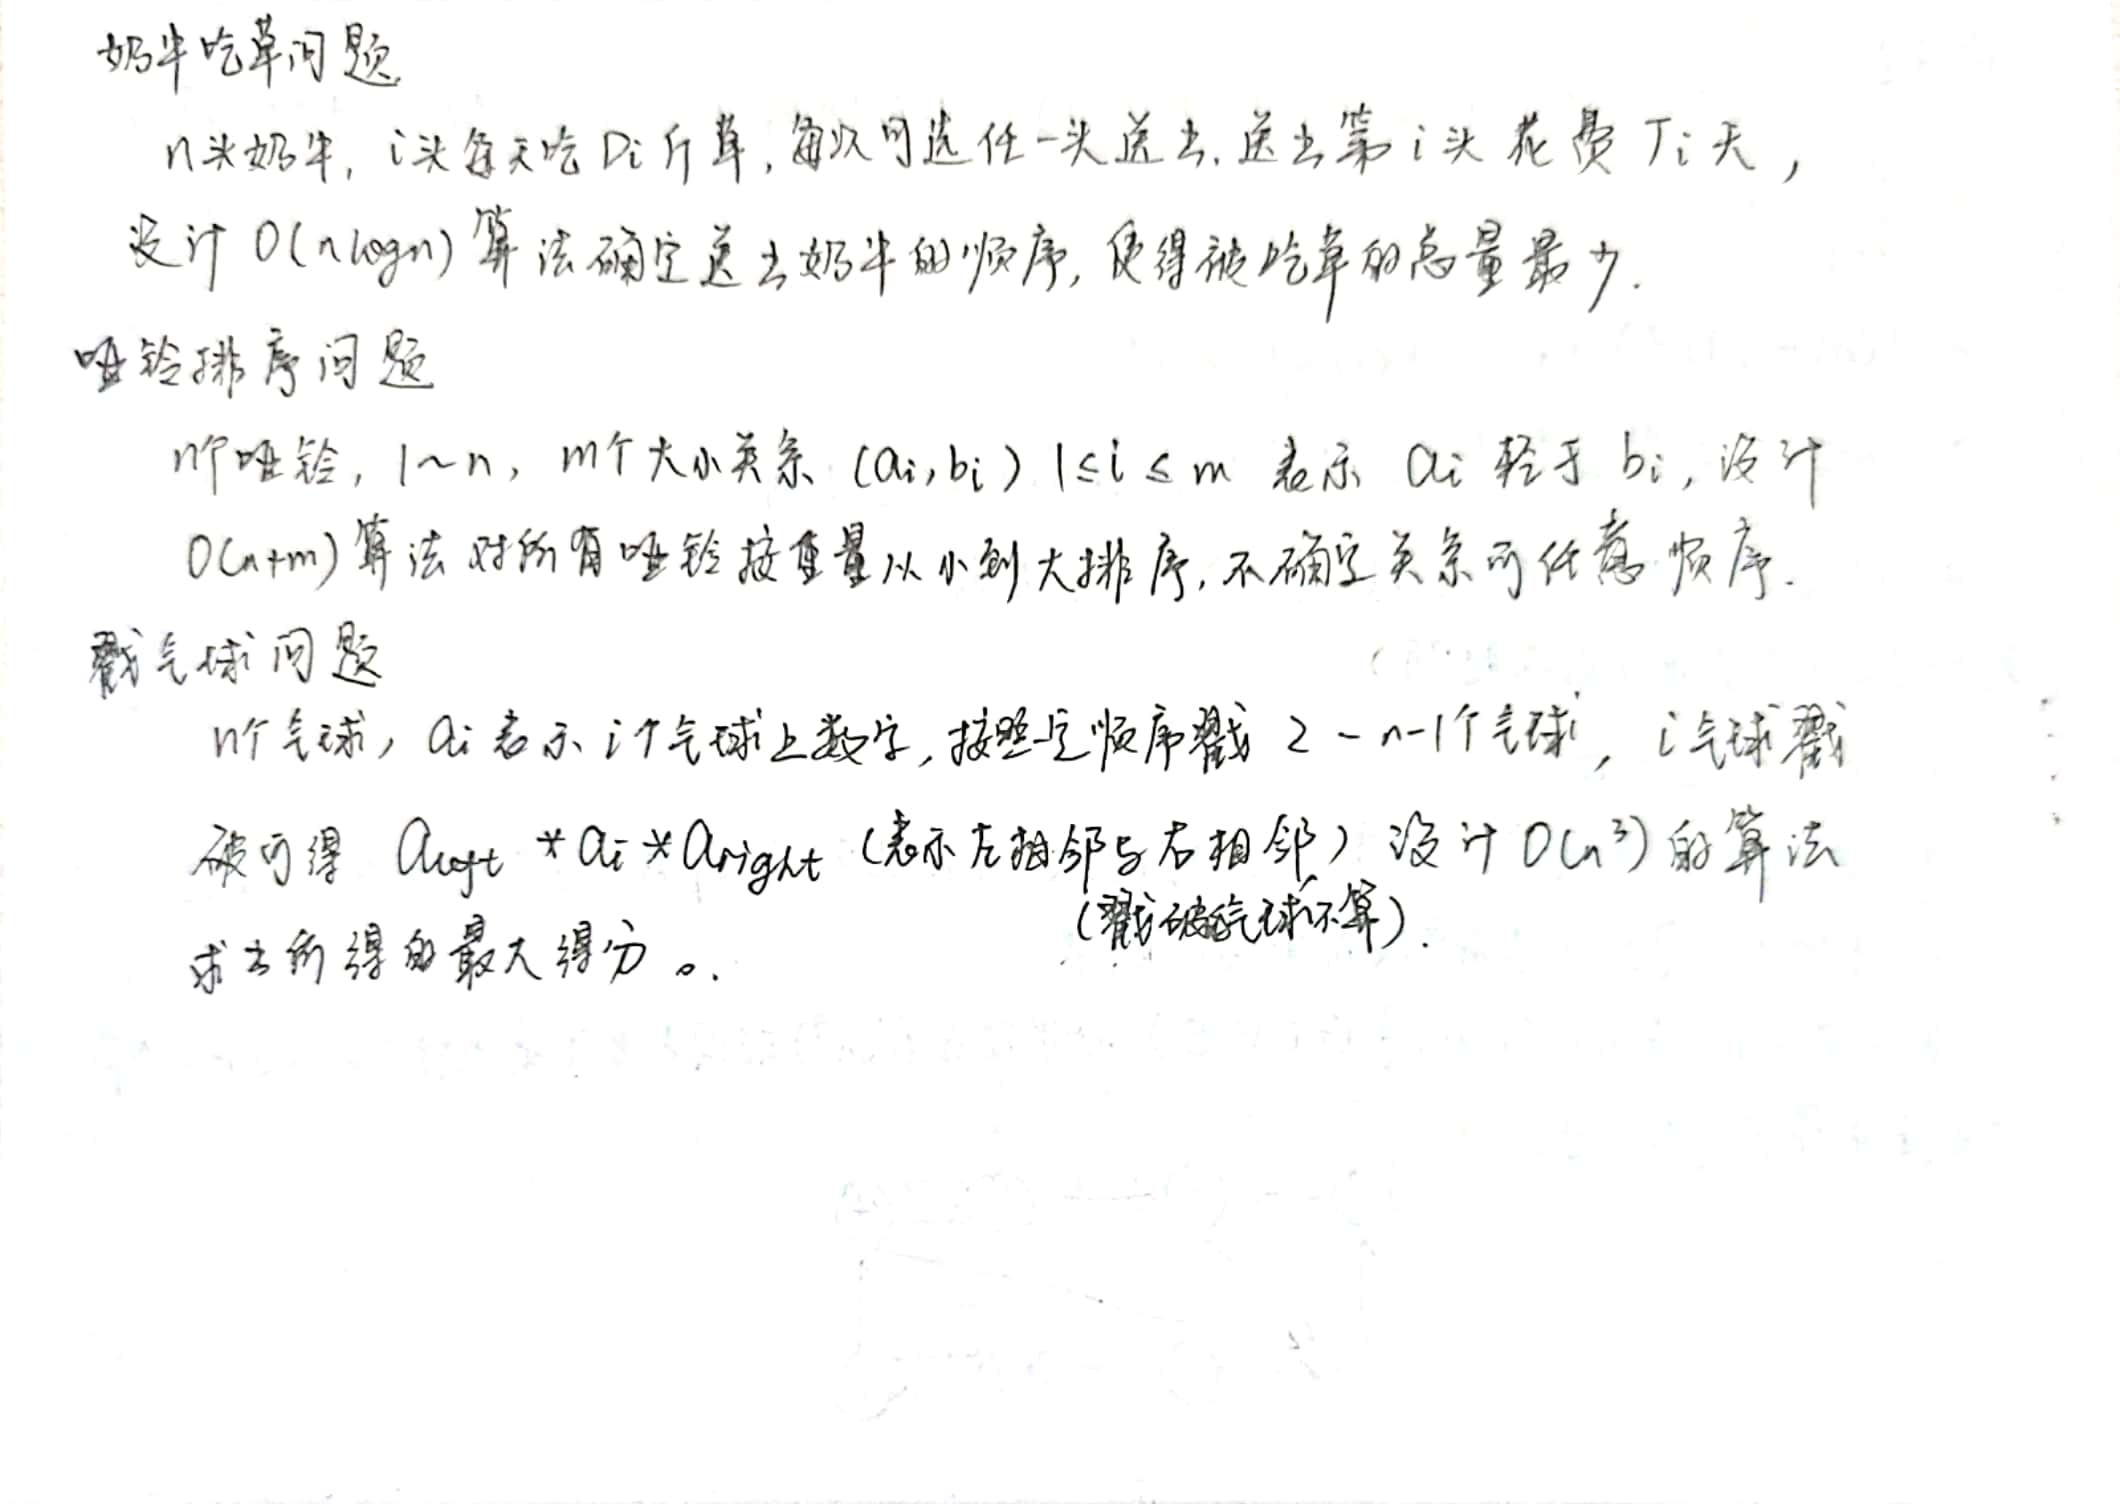 奶牛吃草问题
n头奶牛, i头每天吃 Di 斤草, 每次可选任一头送出, 送出第 i 头 花费 Ti 天,
设计 O(nlogn) 算法确定送出奶牛的顺序, 使得被吃草的总量最少.
哑铃排序问题
n个哑铃, 1~n, m个大小关系 (ai, bi) 1≤i≤m 表示 ai 轻于 bi, 设计
O(n+m) 算法对所有哑铃按重量从小到大排序, 不确定关系可任意顺序.
戳气球问题
n个气球, ai 表示 i个气球上数字, 按照一定顺序戳 2-n-1个气球, i气球戳
破可得 aleft * ai * aright (表示左相邻与右相邻) 设计 O(n³) 的算法
(戳破气球不算).
求出所得的最大得分。.